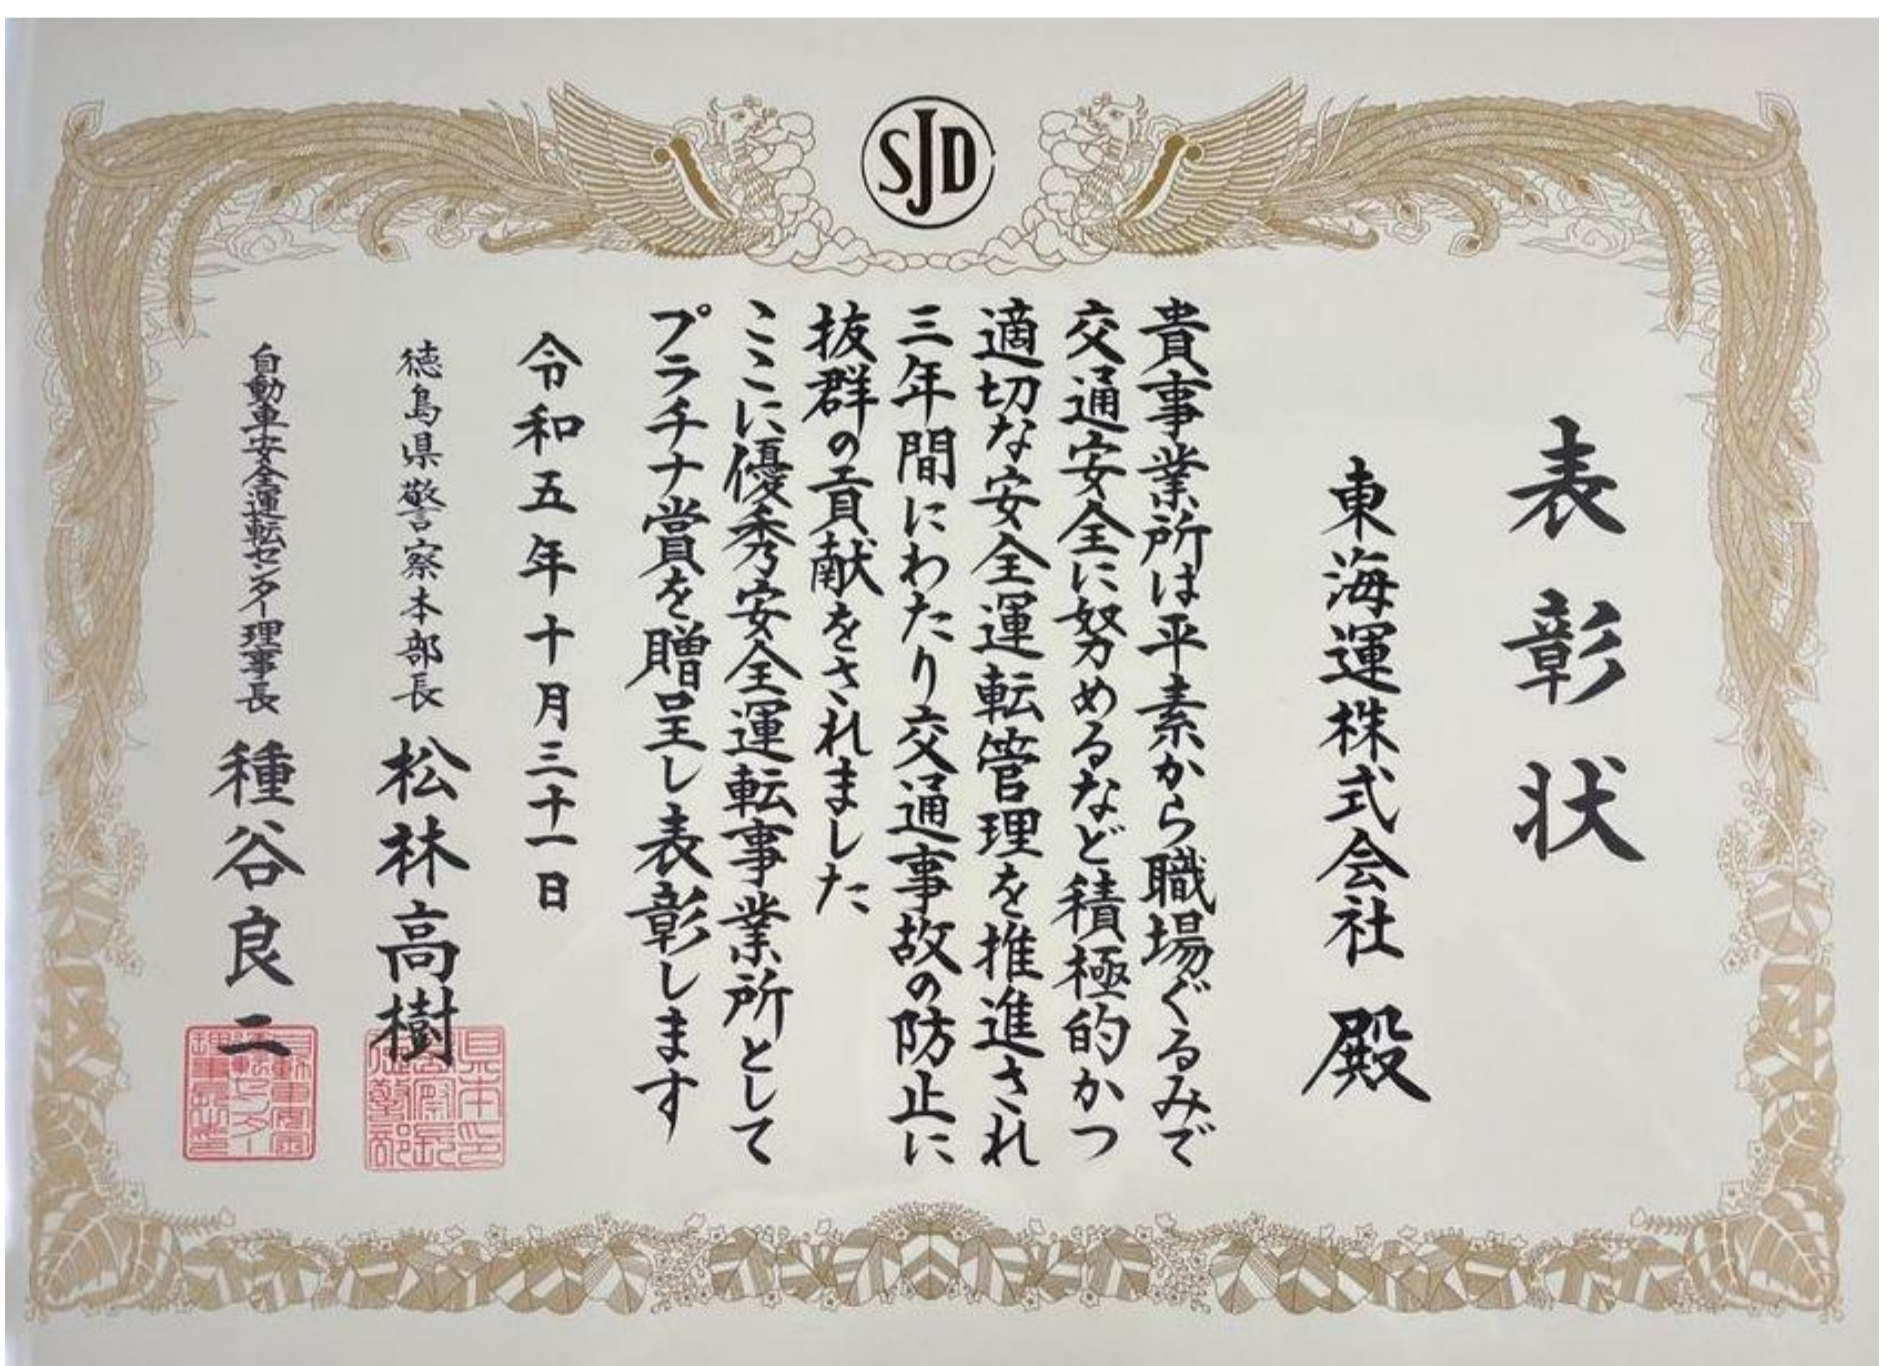 SJD
表彰状
東海運株式会社 殿
貴事業所は平素から職場ぐるみで
交通安全に努めるなど積極的かつ
適切な安全運転管理を推進され
三年間にわたり交通事故の防止に
抜群の貢献をされました
ここに優秀安全運転事業所として
プラチナ賞を贈呈し表彰します
令和五年十月三十一日
徳島県警察本部長 松林高樹
自動車安全運転センター理事長 種谷良二